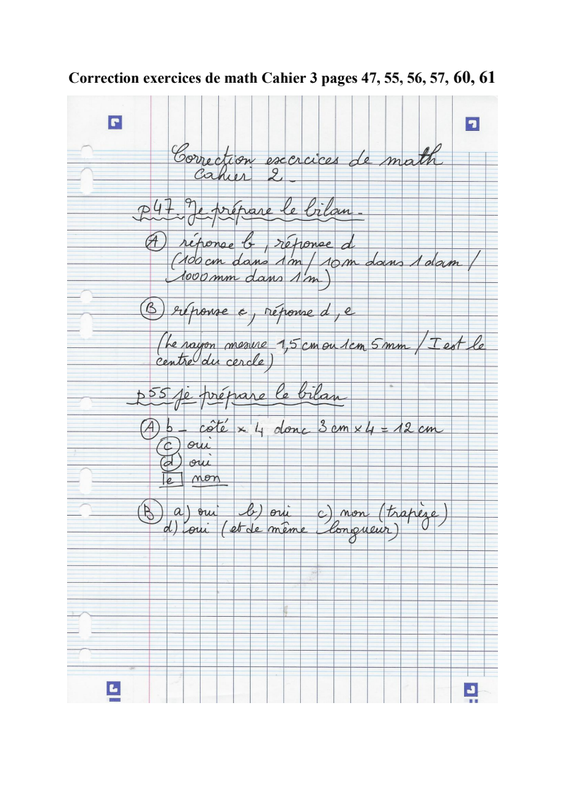 Correction exercices de math Cahier 3 pages 47, 55, 56, 57, 60, 61
Correction exercices de math
Cahier 2 -
p47. Je prépare le bilan -
A réponse b, réponse d
(100 cm dans 1 m / 10 m dans 1 dam /
1000 mm dans 1 m)
B réponse c, réponse d, e
(Le rayon mesure 1,5 cm ou 1cm 5 mm / I est le
centre du cercle)
p55 je prépare le bilan
A b - côté x 4 donc 3 cm x 4 = 12 cm
c oui
d oui
e non
B a) oui b) oui c) non (trapèze)
d) oui (et de même longueur)